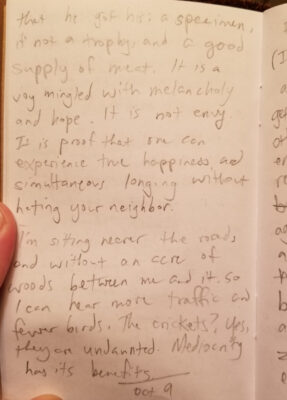 that he got his: a specimen,
if not a trophy, and a good
supply of meat. It is a
joy mingled with melancholy
and hope. It is not envy.
It is proof that one can
experience true happiness and
simultaneous longing without
hating your neighbor.
I'm sitting nearer the road
and without an acre of
woods between me and it. So
I can hear more traffic and
fewer birds. The crickets? Yes,
they are undaunted. Mediocrity
has its benefits
oct 9
(I